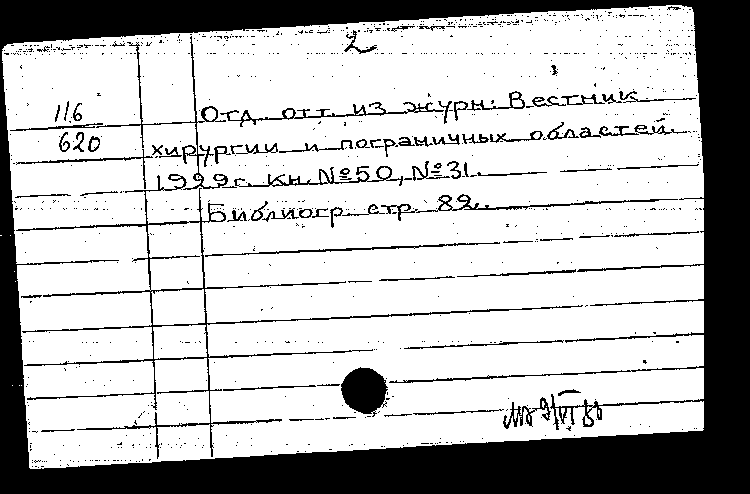 2
116
620
Отд. отт. из журн.: Вестник
хирургии и пограничных областей.
1929г. Кн. №50, №31.
Библиогр. стр. 82.
9/VI